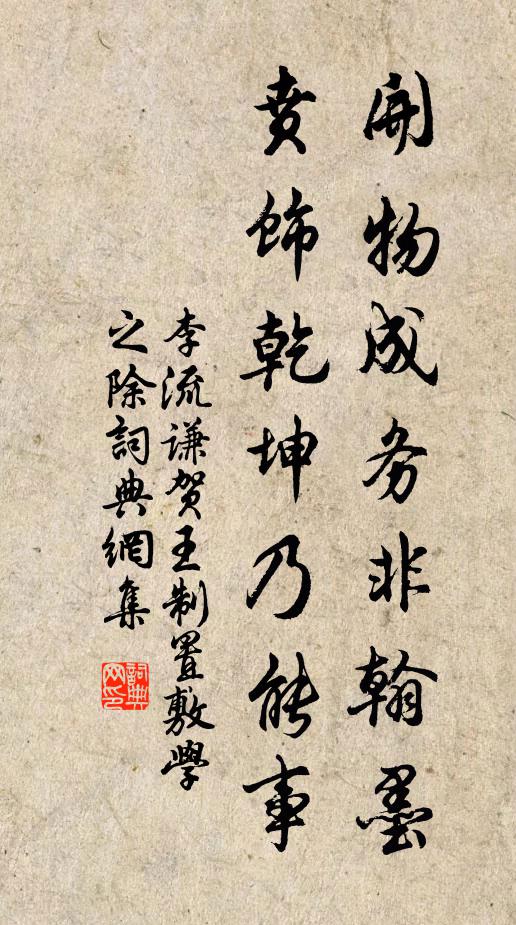 開物成务非翰墨
賁飾乾坤乃能事
李流谦贺王制置敷學
之除詞典網集
詞典网印